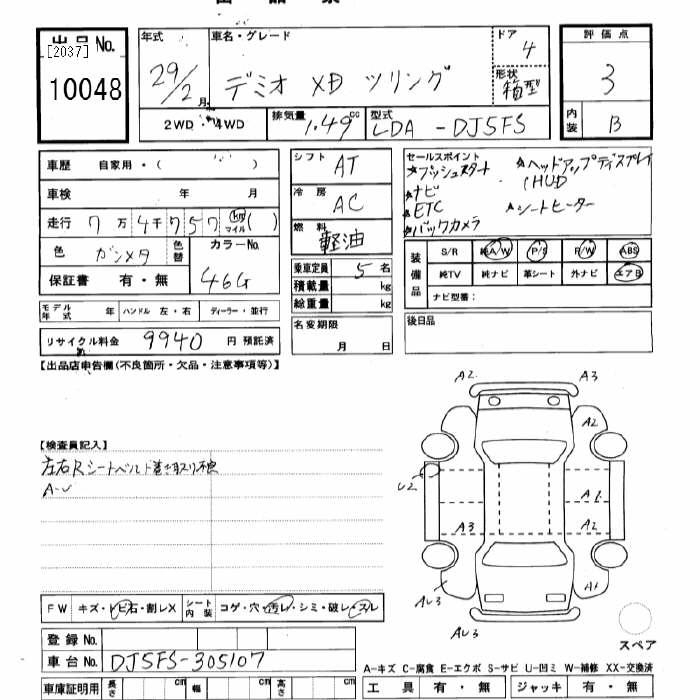 出品No.
[2037]
10048
年式
29/2 月
車名・グレード
デミオ XD ツーリング
ドア
4
形状
箱型
評価点
3
内装
B
2WD・4WD
排気量
1.49 cc
型式
LDA - DJ5FS
車歴 自家用・( )
車検 年 月
走行 7万4千757 km マイル ( )
色 ガンメタ 色替
カラーNo.
46G
保証書 有・無
シフト
AT
冷房
AC
燃料
軽油
乗車定員 5 名
積載量 kg
総重量 kg
セールスポイント
★プッシュスタート
★ナビ
★ETC
★バックカメラ
★ヘッドアップディスプレイ
(HUD
★シートヒーター
装備品
S/R 純A/W P/S P/W ABS
純TV 純ナビ 革シート 外ナビ エアB
ナビ型番:
モデル年式 年 ハンドル 左・右 ディーラー・並行
リサイクル料金 9940 円 預託済
名変期限
月 日
後日品
【出品店申告欄(不良箇所・欠品・注意事項等)】
【検査員記入】
左右Rシートベルト巻き取り不良
A-U
A2
A3
A2
U2
A1
A3
A2
AU3
A1
AU3
スペア
FW キズ・トビ石・割レX シート内装 コゲ・穴・汚レ・シミ・破レ・スレ
登録No.
車台No. DJ5FS-305107
車庫証明用 長さ cm 幅 cm 高さ cm
A-キズ C-腐食 E-エクボ S-サビ U-凹ミ W-補修 XX-交換済
工具 有・無 ジャッキ 有・無